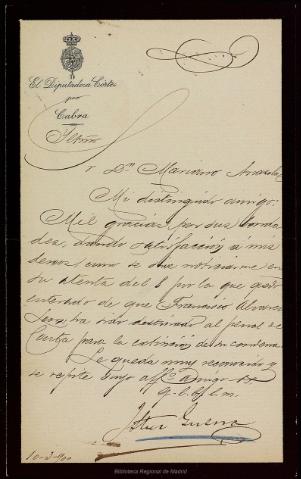 El Diputado a Cortes
por
Cabra
Sr. Dn. Mariano
Mi distinguido amigo:
Mil gracias por sus bonda
des, dando satisfacción a mis
deseos como se sirve noticiarme en
su atenta del 8 por la que quedo
enterado de que Francisco Alvarez
ha sido destinado al penal de
Ceuta para la extinción de su condena.
Le queda muy reconocido y
se repite suyo affmo amigo
q. l. b. l. m.
10-3-900
Biblioteca Regional de Madrid